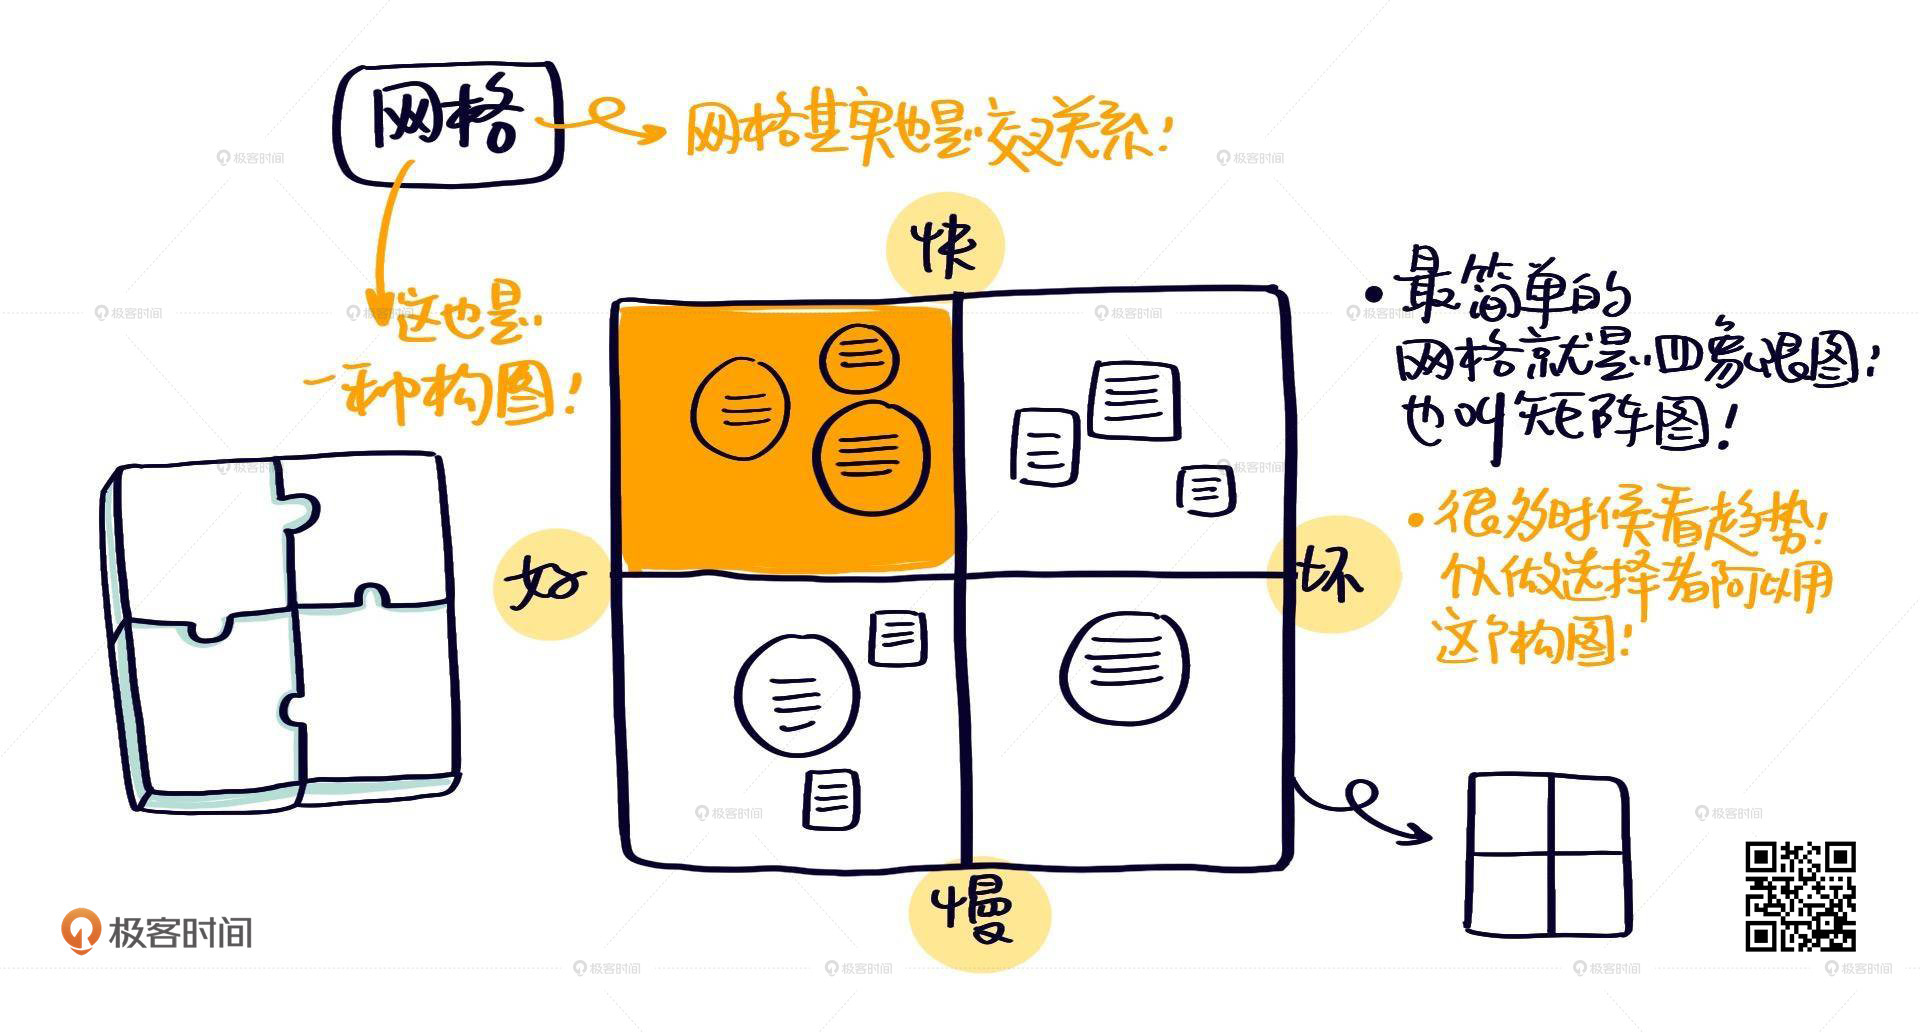 网格
网格其实也是交叉关系！
这也是
一种构图！
快
好
坏
慢
• 最简单的
网格就是四象限图！
也叫矩阵图！
• 很多时候看趋势！
做选择者阿以用
这个构图！
极客时间